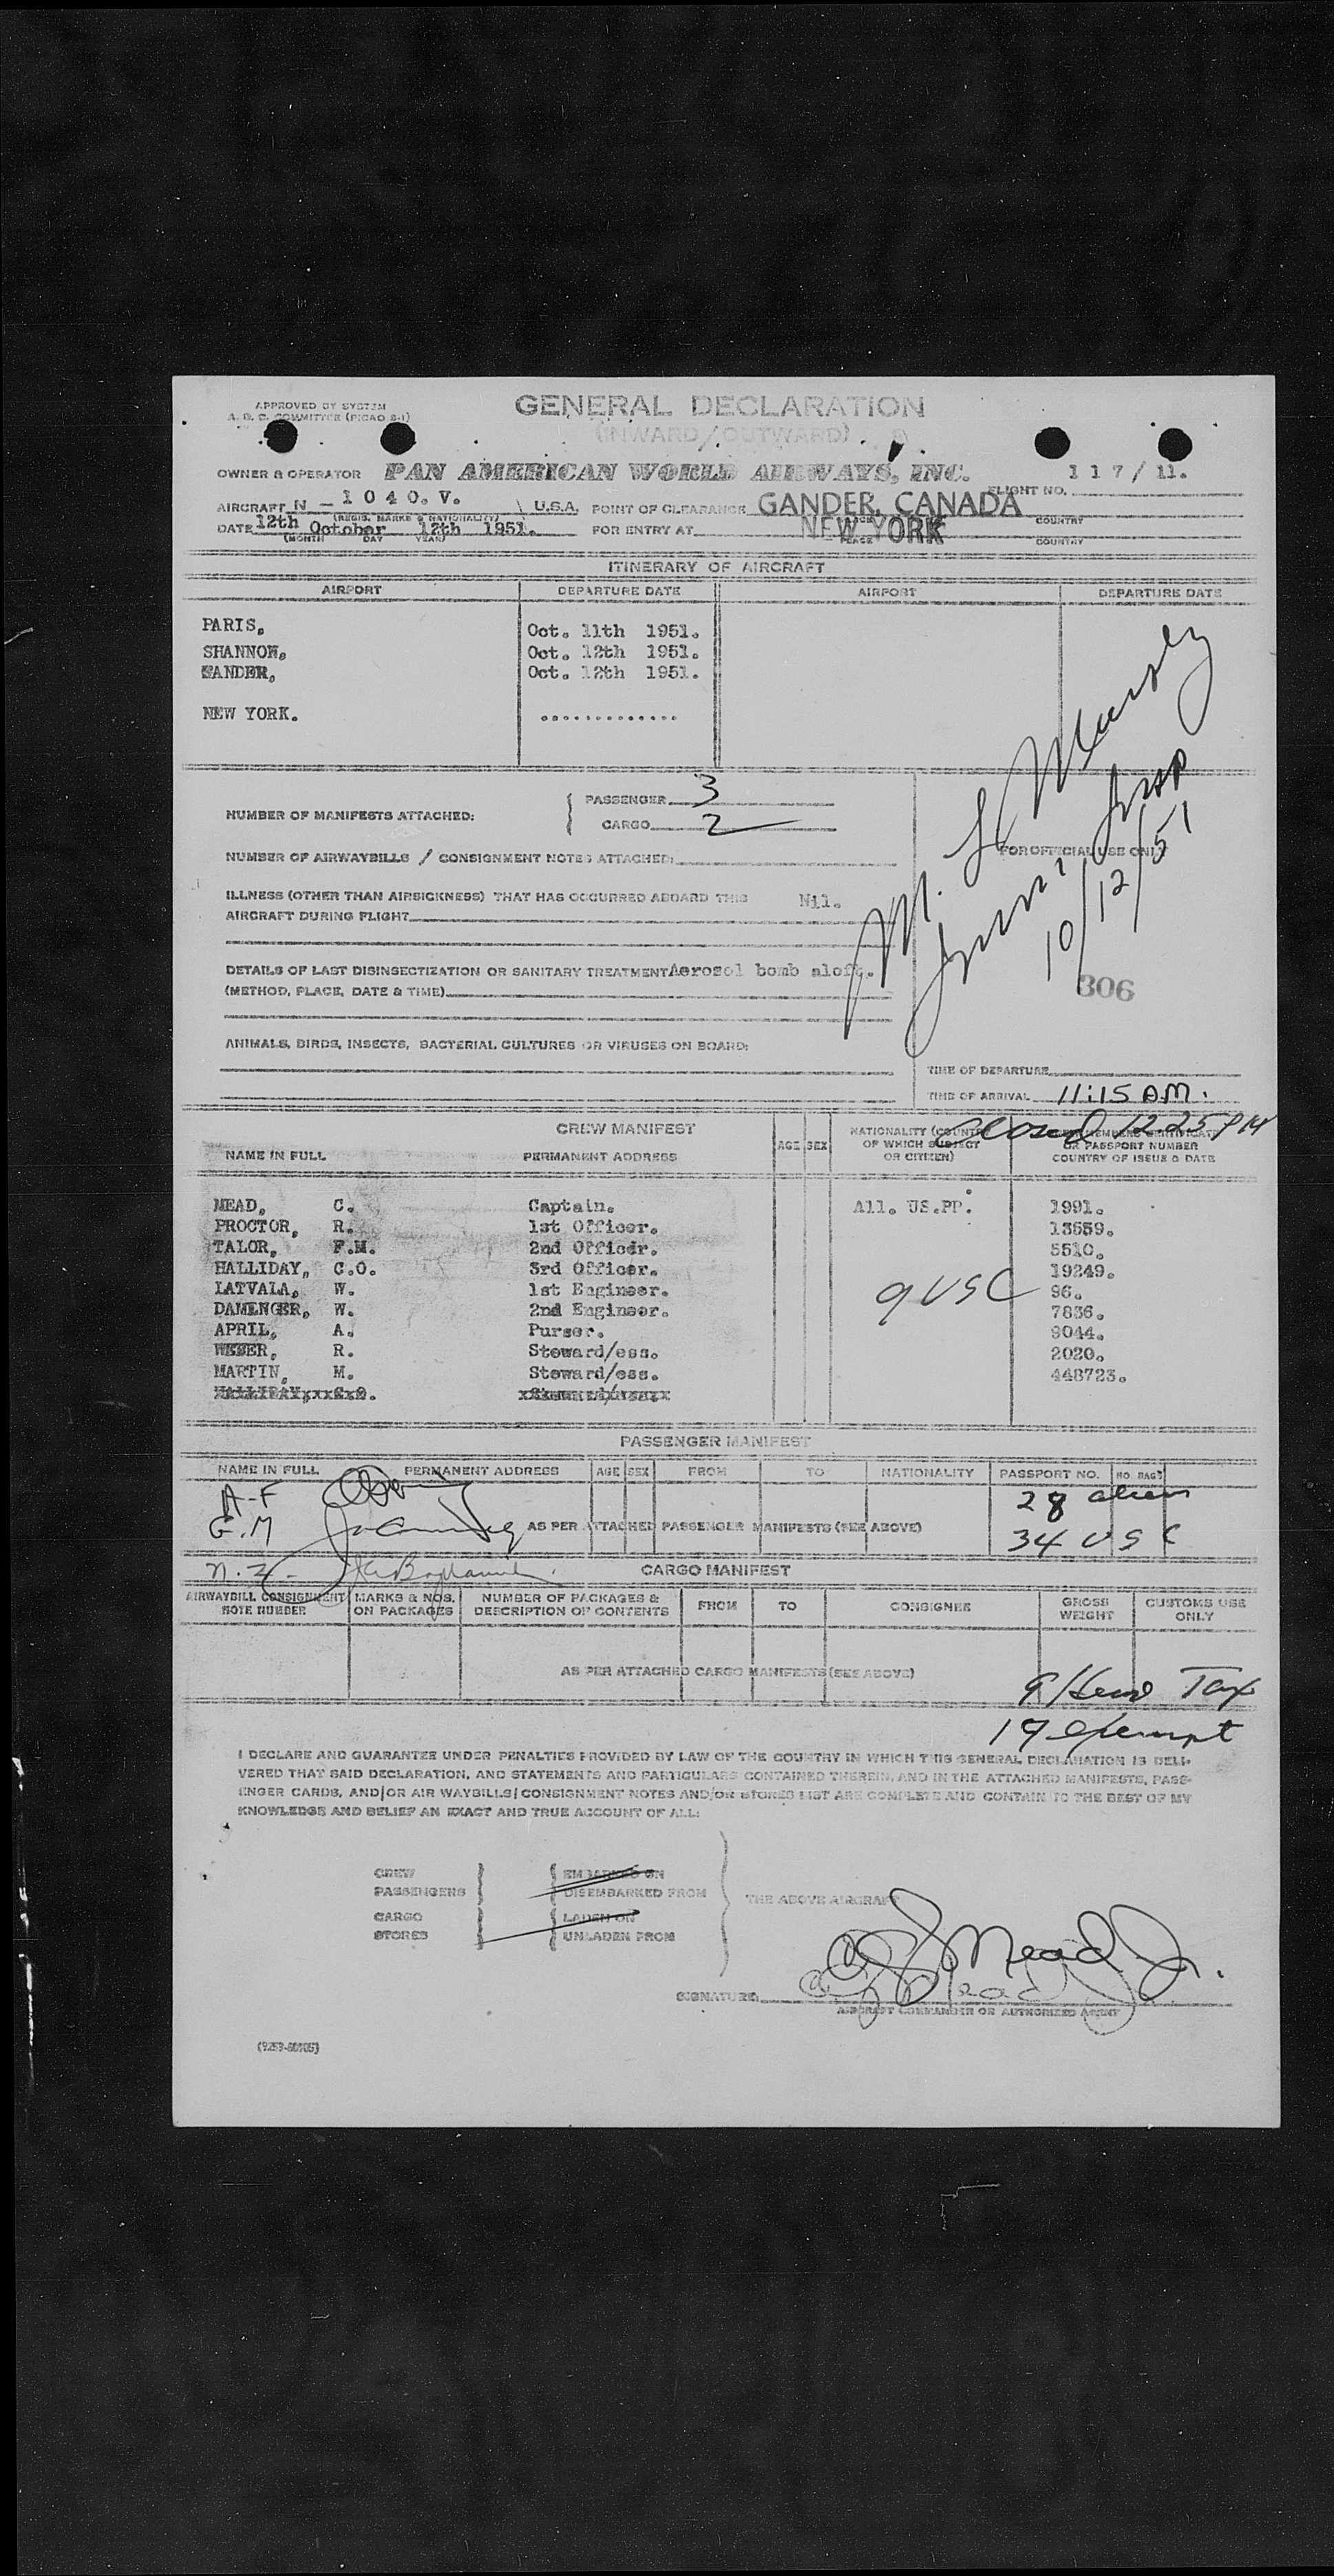 APPROVED BY SYSTEM
A. D. C. COMMITTEE (PICAO 2-1)
GENERAL DECLARATION
(INWARD/OUTWARD)
OWNER & OPERATOR PAN AMERICAN WORLD AIRWAYS, INC.
117/11.
FLIGHT NO.
AIRCRAFT N - 1040.V. U.S.A.
(REGIS. MARKS & NATIONALITY)
POINT OF CLEARANCE GANDER, CANADA
PLACE COUNTRY
DATE 12th October 12th 1951.
(MONTH DAY YEAR)
FOR ENTRY AT NEW YORK
PLACE COUNTRY
ITINERARY OF AIRCRAFT
AIRPORT DEPARTURE DATE AIRPORT DEPARTURE DATE
PARIS, Oct. 11th 1951.
SHANNON, Oct. 12th 1951.
GANDER, Oct. 12th 1951.
NEW YORK. .............
NUMBER OF MANIFESTS ATTACHED:
PASSENGER 3
CARGO 2
NUMBER OF AIRWAYBILLS / CONSIGNMENT NOTES ATTACHED:
FOR OFFICIAL USE ONLY
M. L. Murphy
10/12/51
306
ILLNESS (OTHER THAN AIRSICKNESS) THAT HAS OCCURRED ABOARD THIS Nil.
AIRCRAFT DURING FLIGHT
DETAILS OF LAST DISINSECTIZATION OR SANITARY TREATMENT Aerosol bomb aloft.
(METHOD, PLACE, DATE & TIME)
ANIMALS, BIRDS, INSECTS, BACTERIAL CULTURES OR VIRUSES ON BOARD:
TIME OF DEPARTURE
TIME OF ARRIVAL 11:15 A.M.
closed 12 25 PM
CREW MANIFEST
NAME IN FULL PERMANENT ADDRESS AGE SEX
NATIONALITY (COUNTRY
OF WHICH SUBJECT
OR CITIZEN)
CREW MEMBERS CERTIFICATE
OR PASSPORT NUMBER
COUNTRY OF ISSUE & DATE
MEAD, C. Captain. All. US.PP. 1991.
PROCTOR, R. 1st Officer. 13559.
TALOR, F.M. 2nd Officer. 5510.
HALLIDAY, C.O. 3rd Officer. 19249.
LATVALA, W. 1st Engineer. 96.
DAMENGER, W. 2nd Engineer. 7836.
APRIL, A. Purser. 9044.
WEBER, R. Steward/ess. 2020.
MARTIN, M. Steward/ess. 448723.
9 USC
PASSENGER MANIFEST
NAME IN FULL PERMANENT ADDRESS AGE SEX FROM TO NATIONALITY PASSPORT NO. NO. BAGS
A-F
28 aliens
G.M
AS PER ATTACHED PASSENGER MANIFESTS (SEE ABOVE)
34 U S C
N.Z.
CARGO MANIFEST
AIRWAYBILL CONSIGNMENT
NOTE NUMBER
MARKS & NOS.
ON PACKAGES
NUMBER OF PACKAGES &
DESCRIPTION OF CONTENTS
FROM TO CONSIGNEE
GROSS
WEIGHT
CUSTOMS USE
ONLY
AS PER ATTACHED CARGO MANIFESTS (SEE ABOVE)
9 Head Tax
19 exempt
I DECLARE AND GUARANTEE UNDER PENALTIES PROVIDED BY LAW OF THE COUNTRY IN WHICH THIS GENERAL DECLARATION IS DELI-
VERED THAT SAID DECLARATION, AND STATEMENTS AND PARTICULARS CONTAINED THEREIN, AND IN THE ATTACHED MANIFESTS, PASS-
ENGER CARDS, AND/OR AIR WAYBILLS/CONSIGNMENT NOTES AND/OR STORES LIST ARE COMPLETE AND CONTAIN TO THE BEST OF MY
KNOWLEDGE AND BELIEF AN EXACT AND TRUE ACCOUNT OF ALL:
CREW
PASSENGERS
CARGO
STORES
EMBARKED ON
DISEMBARKED FROM
LADEN ON
UNLADEN FROM
THE ABOVE AIRCRAFT
SIGNATURE Mead Jr.
AIRCRAFT COMMANDER OR AUTHORIZED AGENT